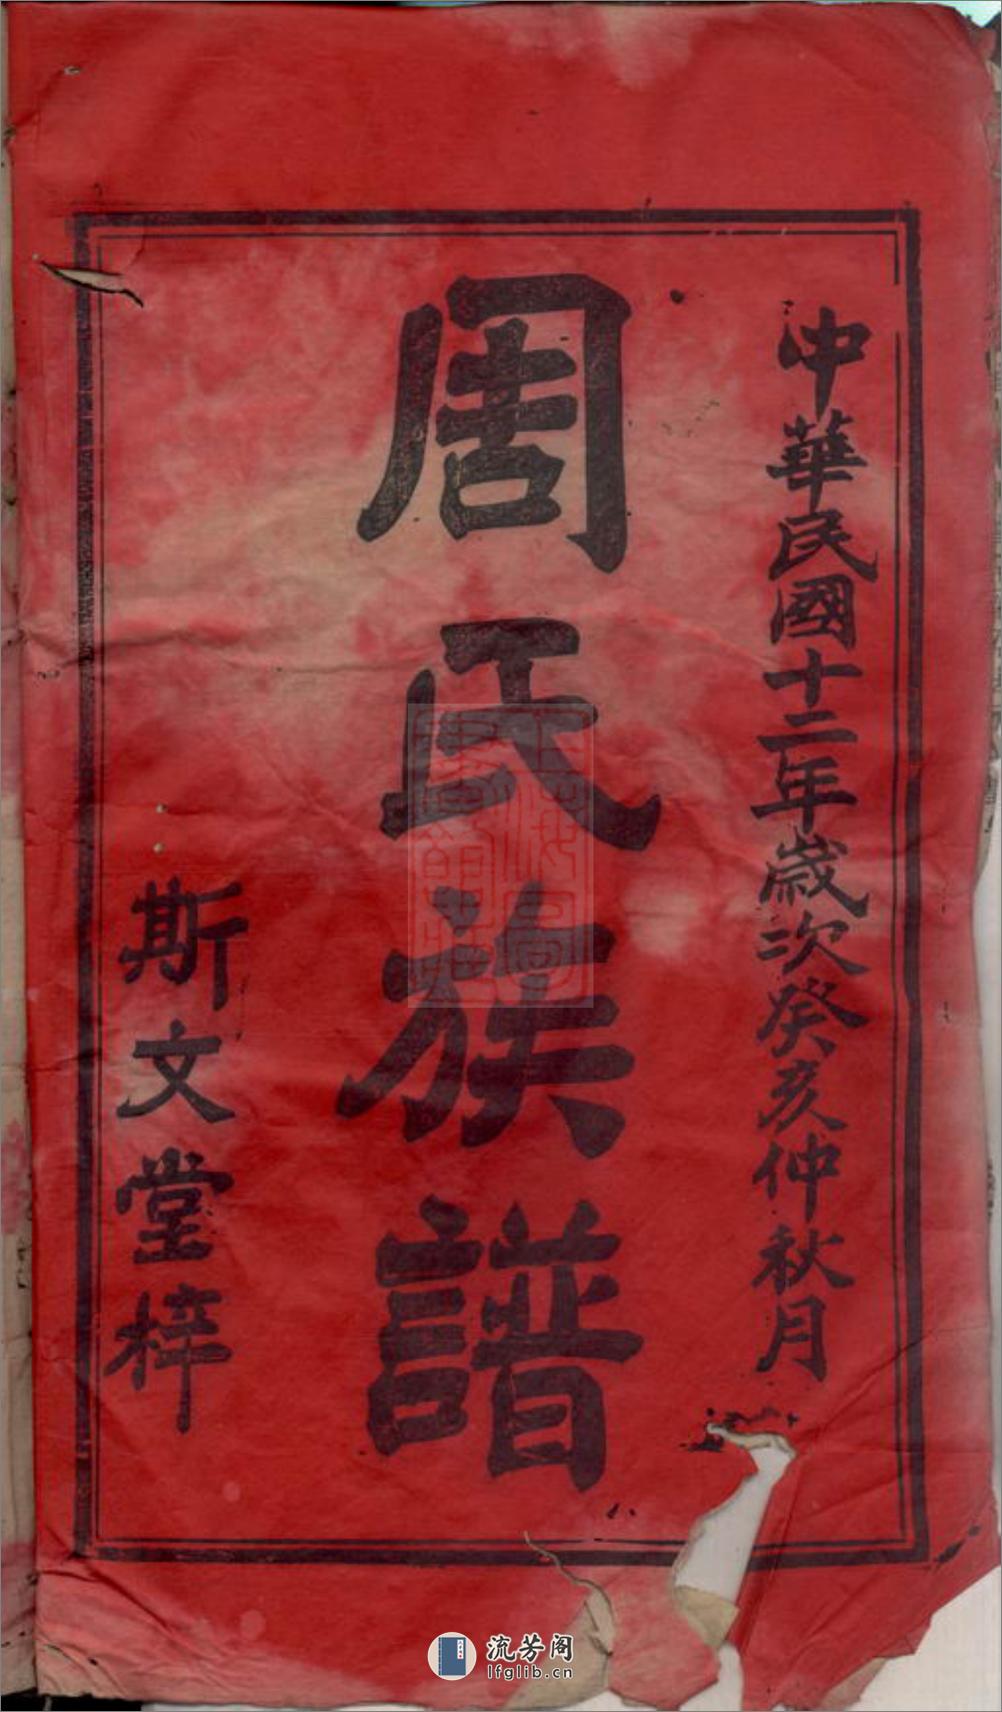 中華民國十二年歲次癸亥仲秋月
周氏族譜
斯文堂梓
流芳阁
lfglib.cn